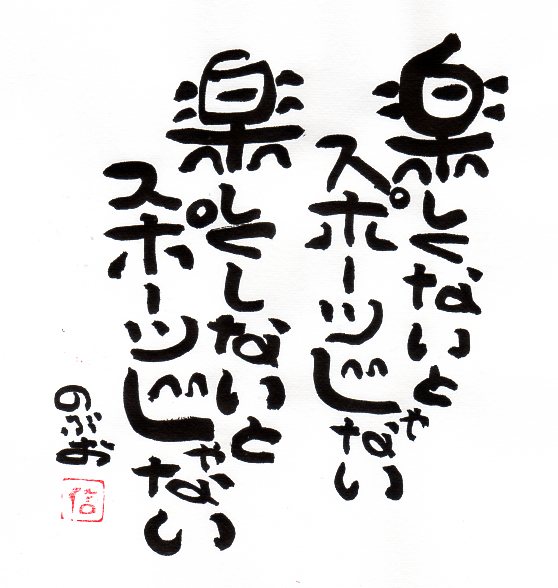 楽しくないと
スポーツじゃない
楽しくしないと
スポーツじゃない
のぶお
信